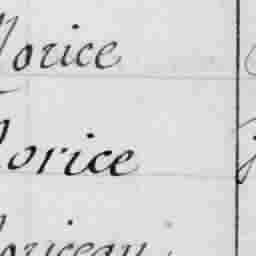 Morice
Morice
Moriceau